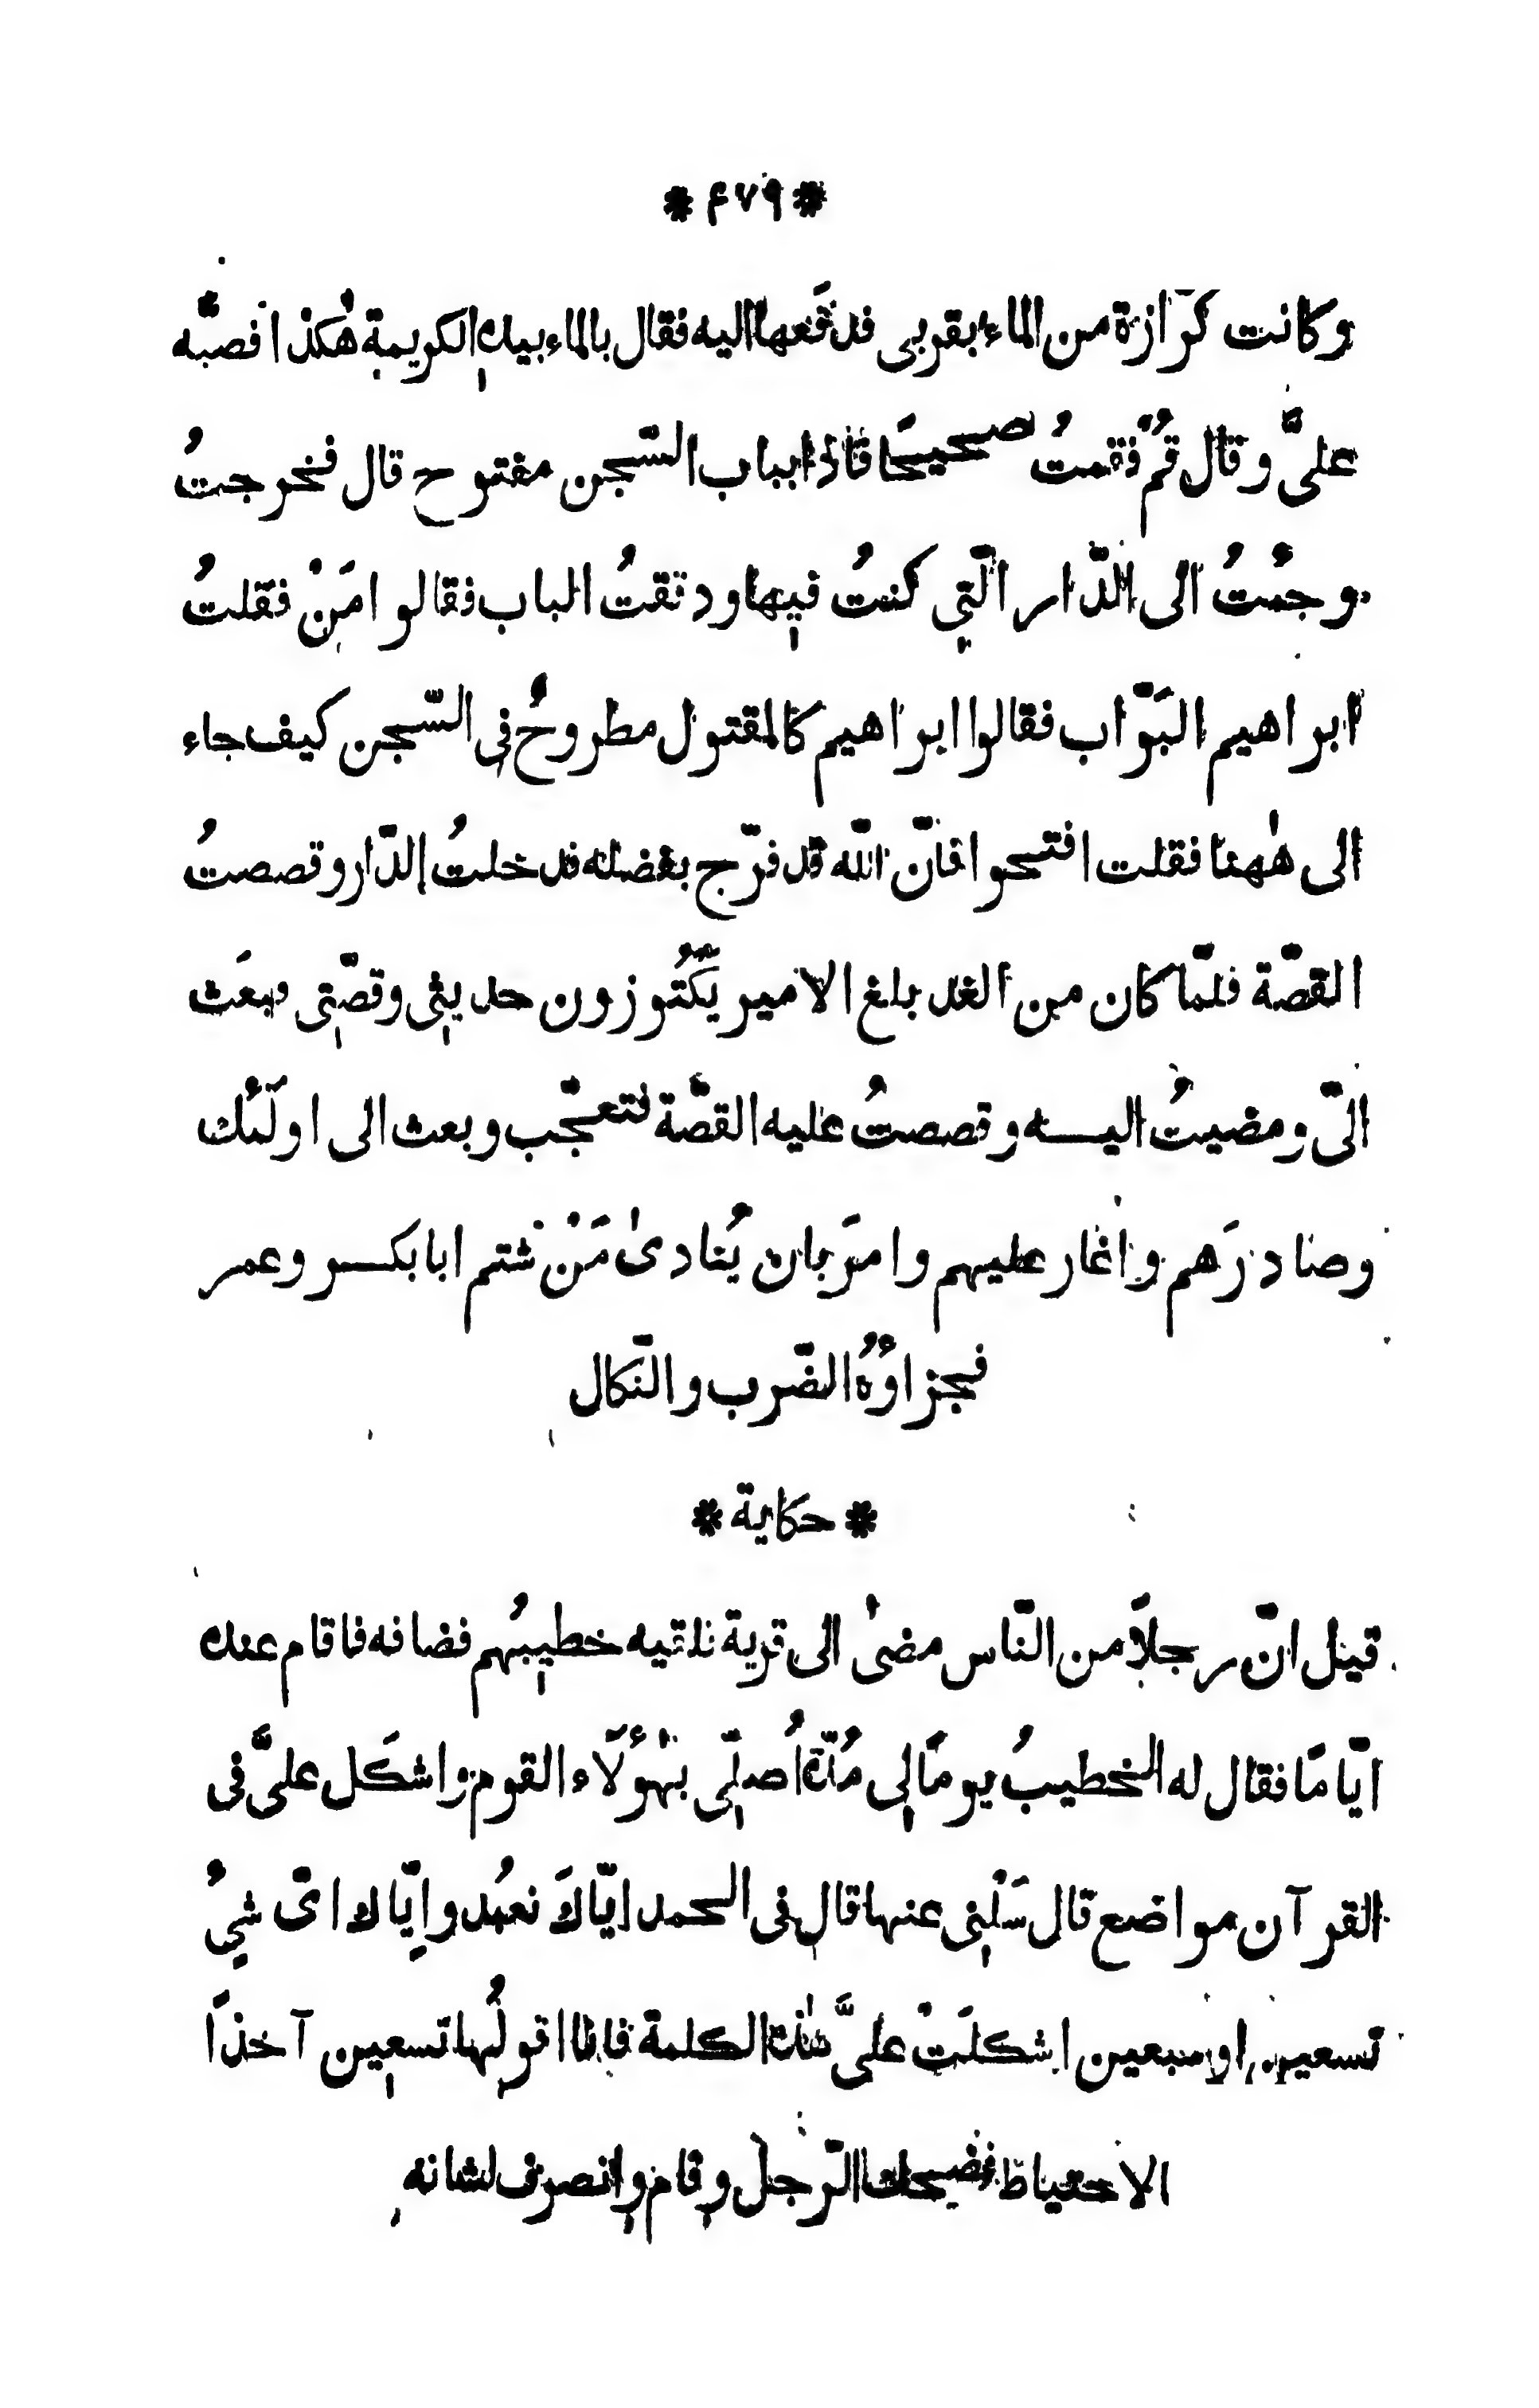 * ۴۷۹ *
وكانت كرّازة من الماء بقربى فدفَعها اليه فقال بالماء بيده الكريمة هٰكذا فصبّه
علىَّ وقال قُمْ فقمتُ صحيحًا فاذا بباب السّجن مفتوح قال فخرجتُ
وجئتُ الى الدّار الّتى كنتُ فيها ودققتُ الباب فقالوا مَنْ فقلتُ
ابراهيم البَوّاب فقالوا ابراهيم كالمقتول مطروحُ فى السّجن كيف جاء
الى هٰهنا فقلت افتحوا فانّ اللّه قد فرّج بفضله فدخلتُ الدّار وقصصتُ
القصّة فلمّا كان من الغد بلغ الامير يَكْتُوزون حديثى وقصّتى فبعَث
الىّ ومضيتُ اليه وقصصتُ عليه القصّة فتعجّب وبعث الى اولَئك
وصادرَهم واغار عليهم وامَر بان يُنادىٰ مَنْ شتم ابابكر وعمر
فجزاؤُهُ الضّرب والنّكال
* حكاية *
قيل انّ رجلاً من النّاس مضىٰ الى قرية فلقيه خطيبُهم فضافه فاقام عنده
ايّامًا فقال له الخطيبُ يومًا لِى مُدّة اُصلّى بهٰؤُلَاء القوم واشكَل علىَّ فى
القرآن مواضع قال سَلْنِى عنها قال فى الحمد ايّاكَ نعبُد واِيّاك اىّ شىءُ
تسعين او سبعين اشكلَتْ علىَّ هٰذه الكلمة فانا اقولُها تسعِين آخذًا
الاحتياط فضحك الرّجل وقام وانصرف لشانه